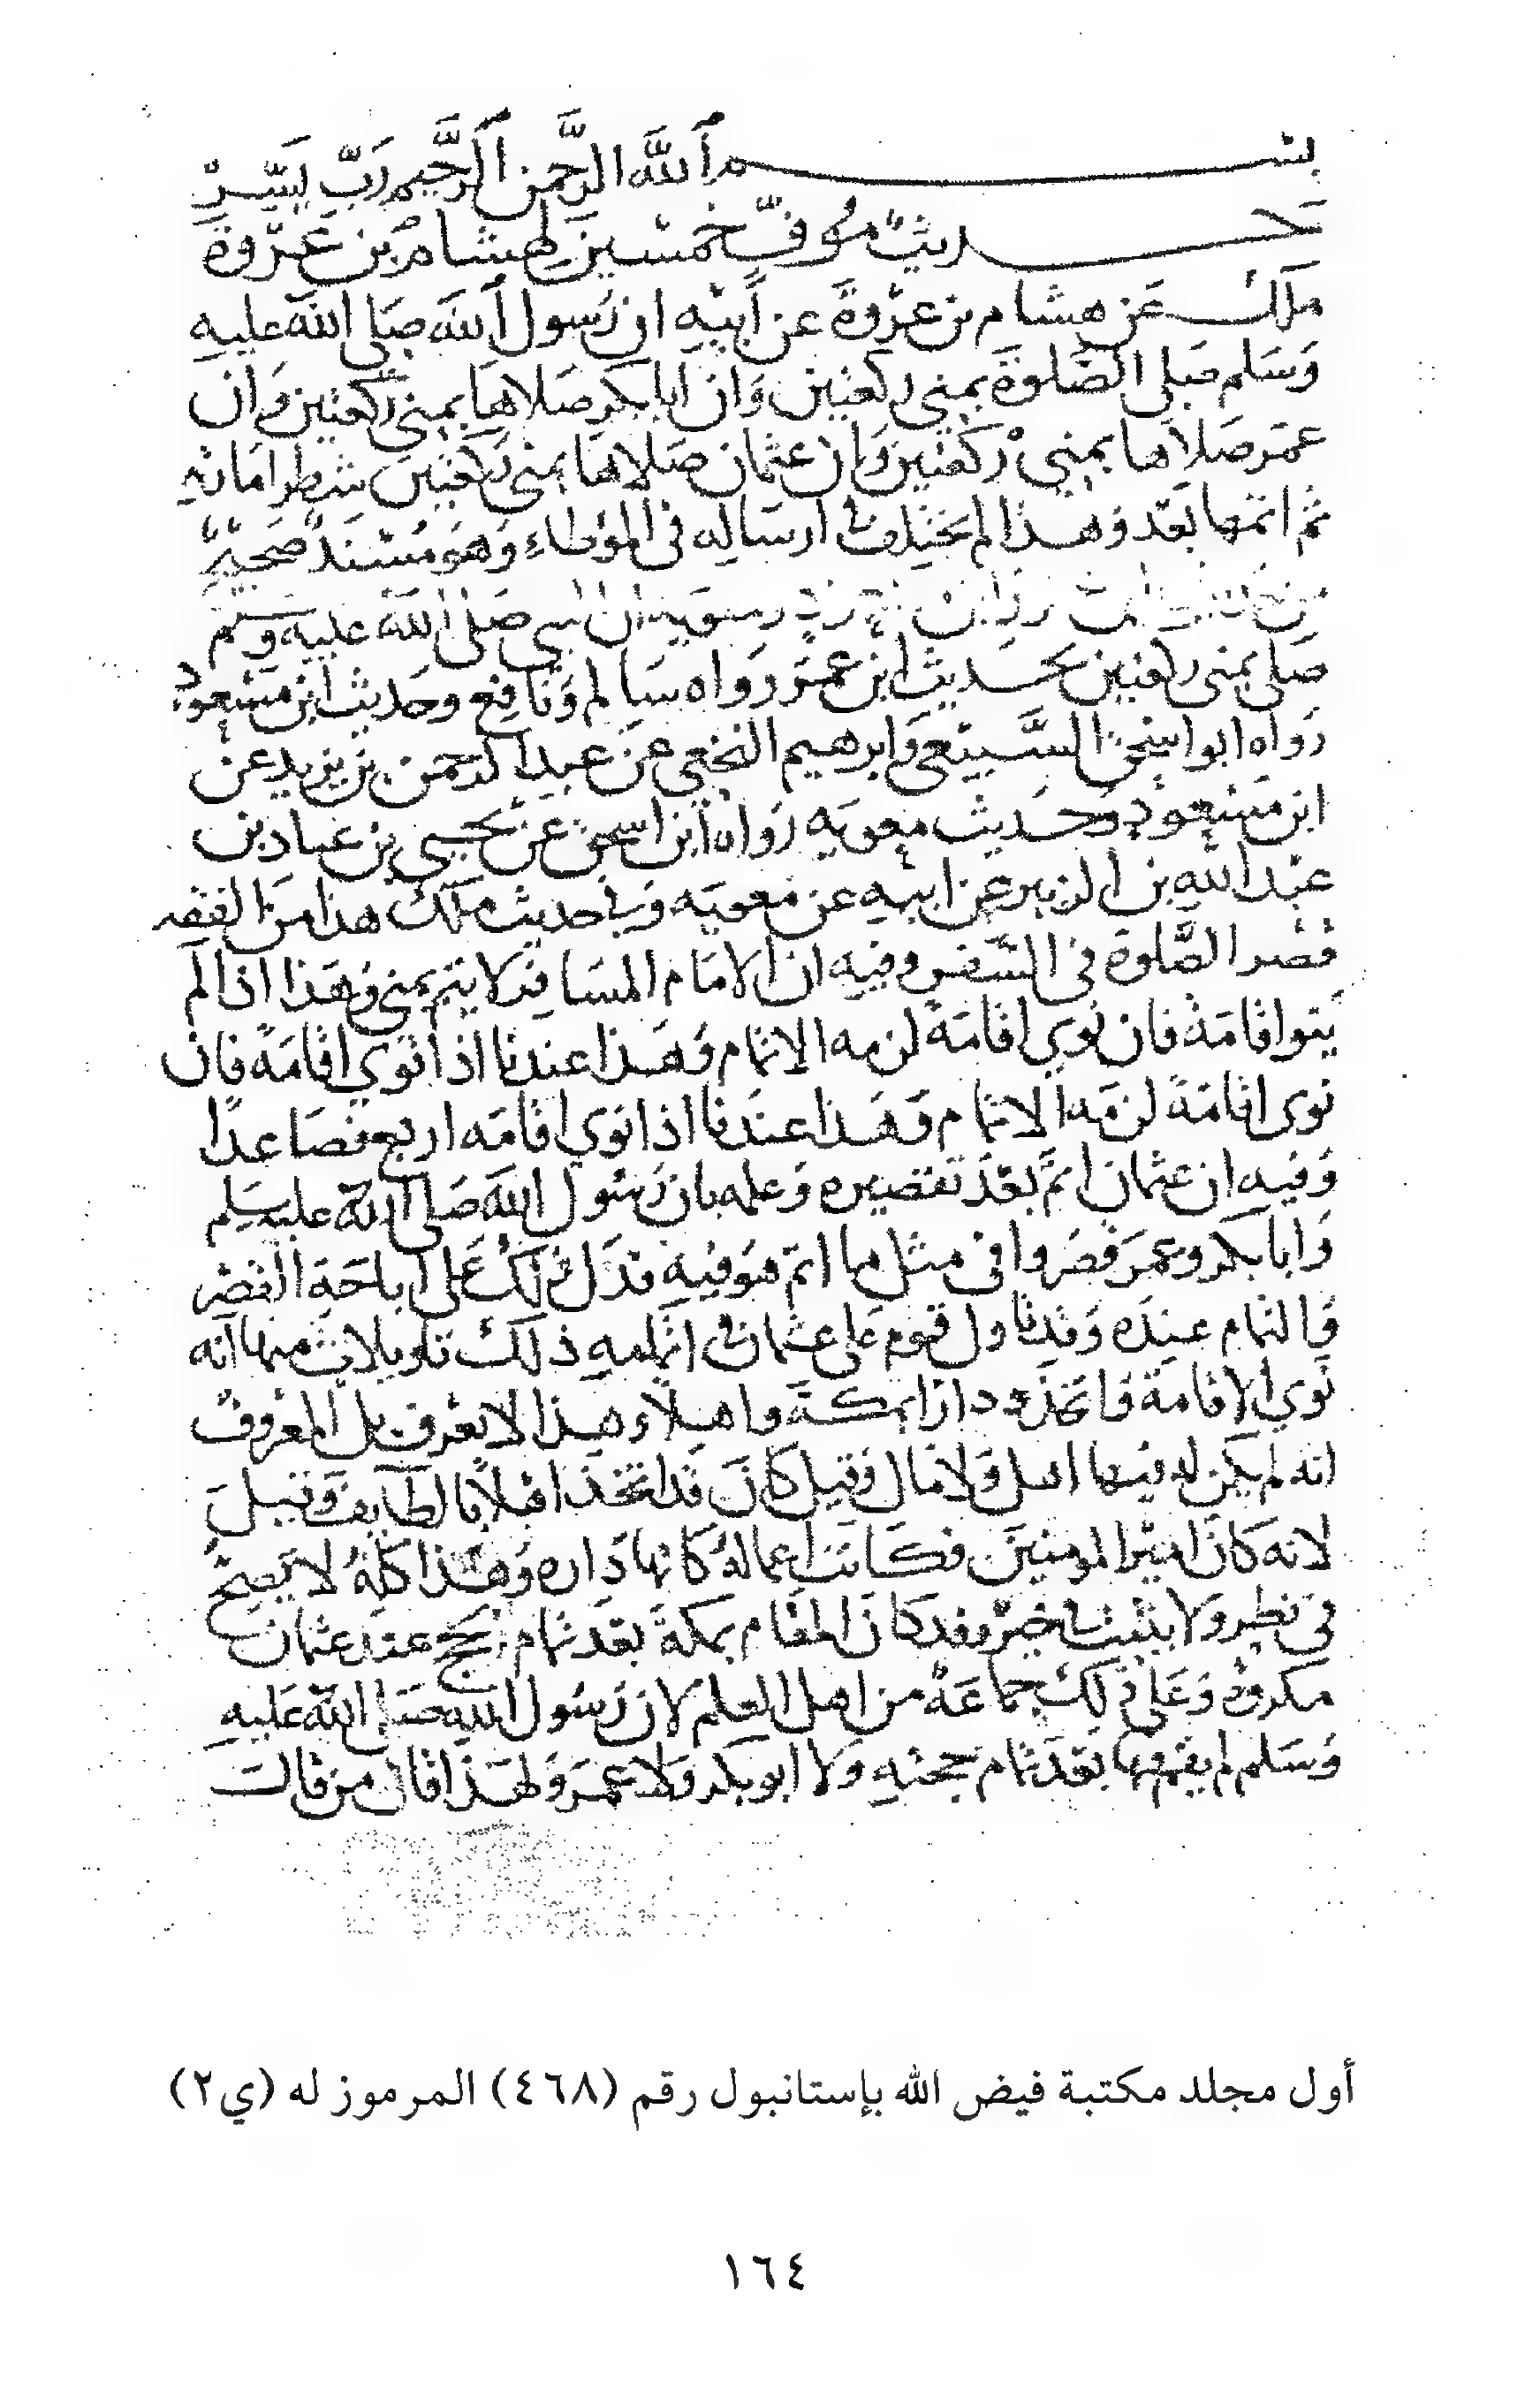 بسم الله الرحمن الرحيم رب يسر
حديث موف خمسين لهشام بن عروة
ملك عن هشام بن عروة عن أبيه ان رسول الله صلى الله عليه
وسلم صلى الصلوة بمنى ركعتين وان ابا بكر صلاها بمنى ركعتين وان
عمر صلاها بمنى ركعتين وان عثمان صلاها بمنى ركعتين شطر امارته
ثم اتمها بعد وهذا لم يختلف في ارساله في الموطاء وهو مسند صحيح
ان النبي صلى الله عليه وسلم
صلى بمنى ركعتين بحديث ابن عمر رواه سالم ونافع وحديث ابن مسعود
رواه ابو اسحق السبيعي وابرهيم النخعي عن عبد الرحمن بن يزيد عن
ابن مسعود وحديث معويه رواه ابن اسحق عن يحيى بن عباد بن
عبد الله بن الزبير عن ابيه عن معويه وفي حديث ملك هذا من الفقه
قصر الصلوة في السفر وفيه ان الامام المسافر لا يتم بمنى وهذا اذا لم
ينوا اقامة فان نوى اقامة لزمه الاتمام وهذا عندنا اذا انوى اقامة فان
نوى اقامة لزمه الاتمام وهذا عندنا اذا نوى اقامه اربع فصاعدا
وفيه ان عثمان اتم بعد تقصيره وعلمه بان رسول الله صلى الله عليه سلم
وابا بكر وعمر قصروا في مثل ما اتم هو فيه فدل ذلك على اباحة القصر
والتمام عنده وقد تاول قوم على عثمان في اتمامه ذلك تاويلات منها انه
نوى الاقامة فاتخذ دارا بمكة واهلا وهذا لا يعرف بل المعروف
انه لم يكن له فيها اهل ولا مال وقيل كان قد اتخذ اهلا بالطايف وقيل
لانه كان امير المومنين فكانت اعماله كانها داره وهذا كله لا يصح
في نظر ولا يثبت في خبر وقد كان المقام بمكة بعد تمام الحج عند عثمان
مكروه وعلى ذلك جماعة من اهل العلم لان رسول الله صلى الله عليه
وسلم لم يقم بها بعد تمام حجته ولا ابو بكر ولا عمر ولهذا قال من قال
أول مجلد مكتبة فيض الله بإستانبول رقم (٤٦٨) المرموز له (ي٢)
١٦٤